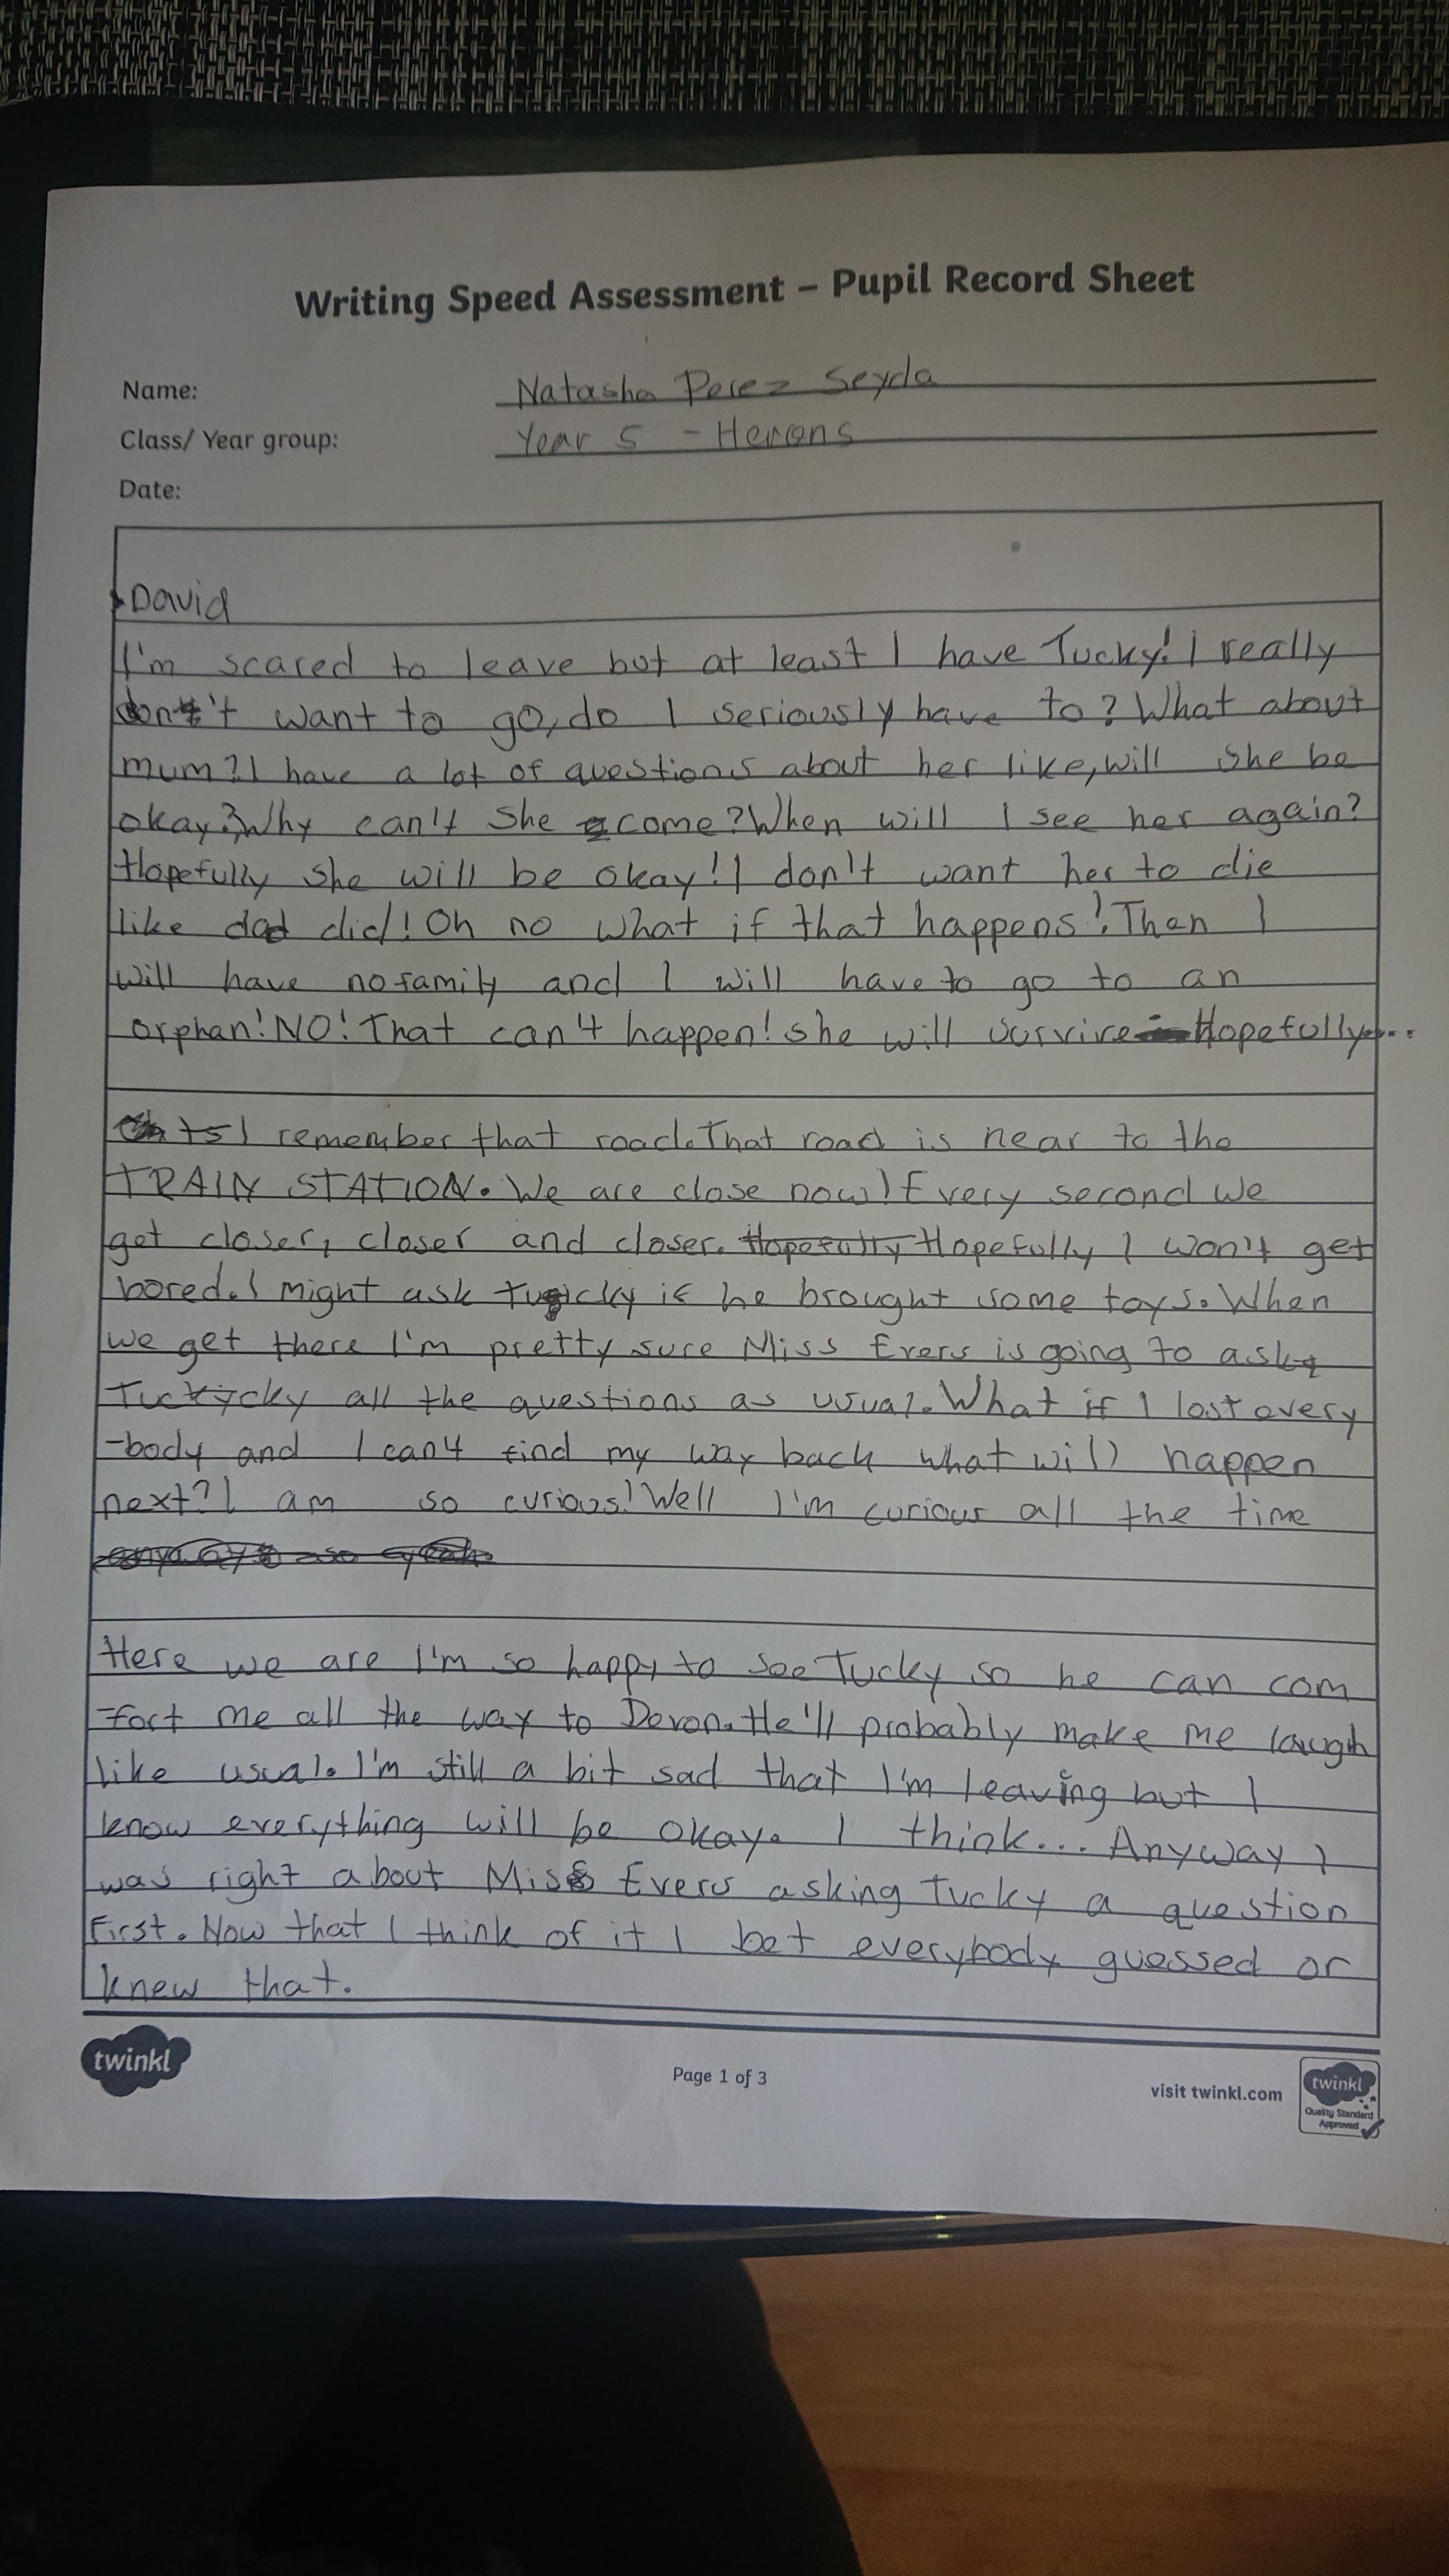 Writing Speed Assessment – Pupil Record Sheet
Name: Natasha Perez Seyda
Class/ Year group: Year 5 - Herons
Date:
David
I'm scared to leave but at least I have Tucky! I really
don't want to go, do I seriously have to? What about
mum? I have a lot of questions about her like, will she be
okay? Why can't she come? When will I see her again?
Hopefully she will be okay! I don't want her to die
like dad did! Oh no what if that happens! Then I
will have no family and I will have to go to an
orphan! NO! That can't happen! She will survive Hopefully...
I remember that road. That road is near to the
TRAIN STATION. We are close now! Every second we
get closer, closer and closer. Hopefully Hopefully I won't get
bored. I might ask Tucky if he brought some toys. When
we get there I'm pretty sure Miss Evers is going to ask
Tucky all the questions as usual. What if I lost every
-body and I can't find my way back what will happen
next? I am so curious! Well I'm curious all the time
Here we are I'm so happy to see Tucky so he can com
-fort me all the way to Devon. He'll probably make me laugh
like usual. I'm still a bit sad that I'm leaving but I
know everything will be okay. I think... Anyway I
was right about Miss Evers asking Tucky a question
first. Now that I think of it I bet everybody guessed or
knew that.
twinkl
Page 1 of 3
visit twinkl.com
twinkl
Quality Standard
Approved